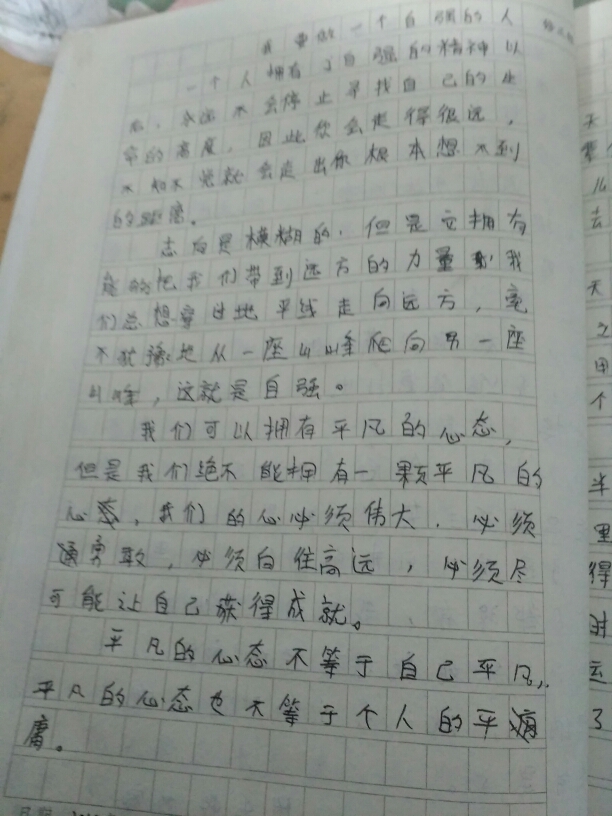 我要做一个自强的人
一个人拥有了自强的精神以
后，永远不会停止寻找自己的生
命的高度，因此你会走得很远，
不知不觉就会走出你根本想不到
的距离。
志向是模糊的，但是它拥有
能够把我们带到远方的力量，我
们总想穿过地平线走向远方，毫
不犹豫地从一座山峰爬向另一座
山峰，这就是自强。
我们可以拥有平凡的心态，
但是我们绝不能拥有一颗平凡的
心态，我们的心必须伟大，必须
勇敢，必须向往高远，必须尽
可能让自己获得成就。
平凡的心态不等于自己平凡，
平凡的心态也不等于个人的平
庸。